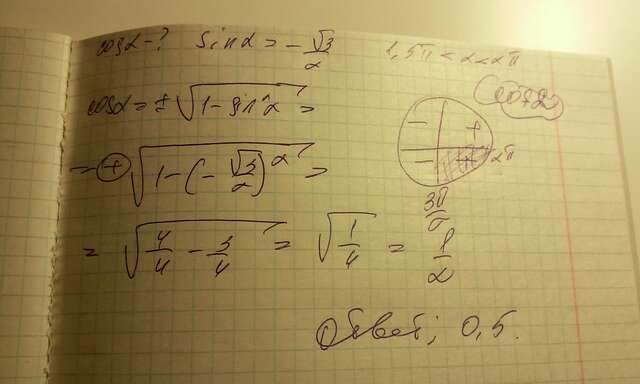 cosα-? sinα = -√3/2 1,5π < α < 2π
cosα = ±√(1 - sin²α) =
= +√(1 - (-√3/2)²) =
= √(4/4 - 3/4) = √(1/4) = 1/2
- +
- + 2π
3π/2
Ответ: 0,5.